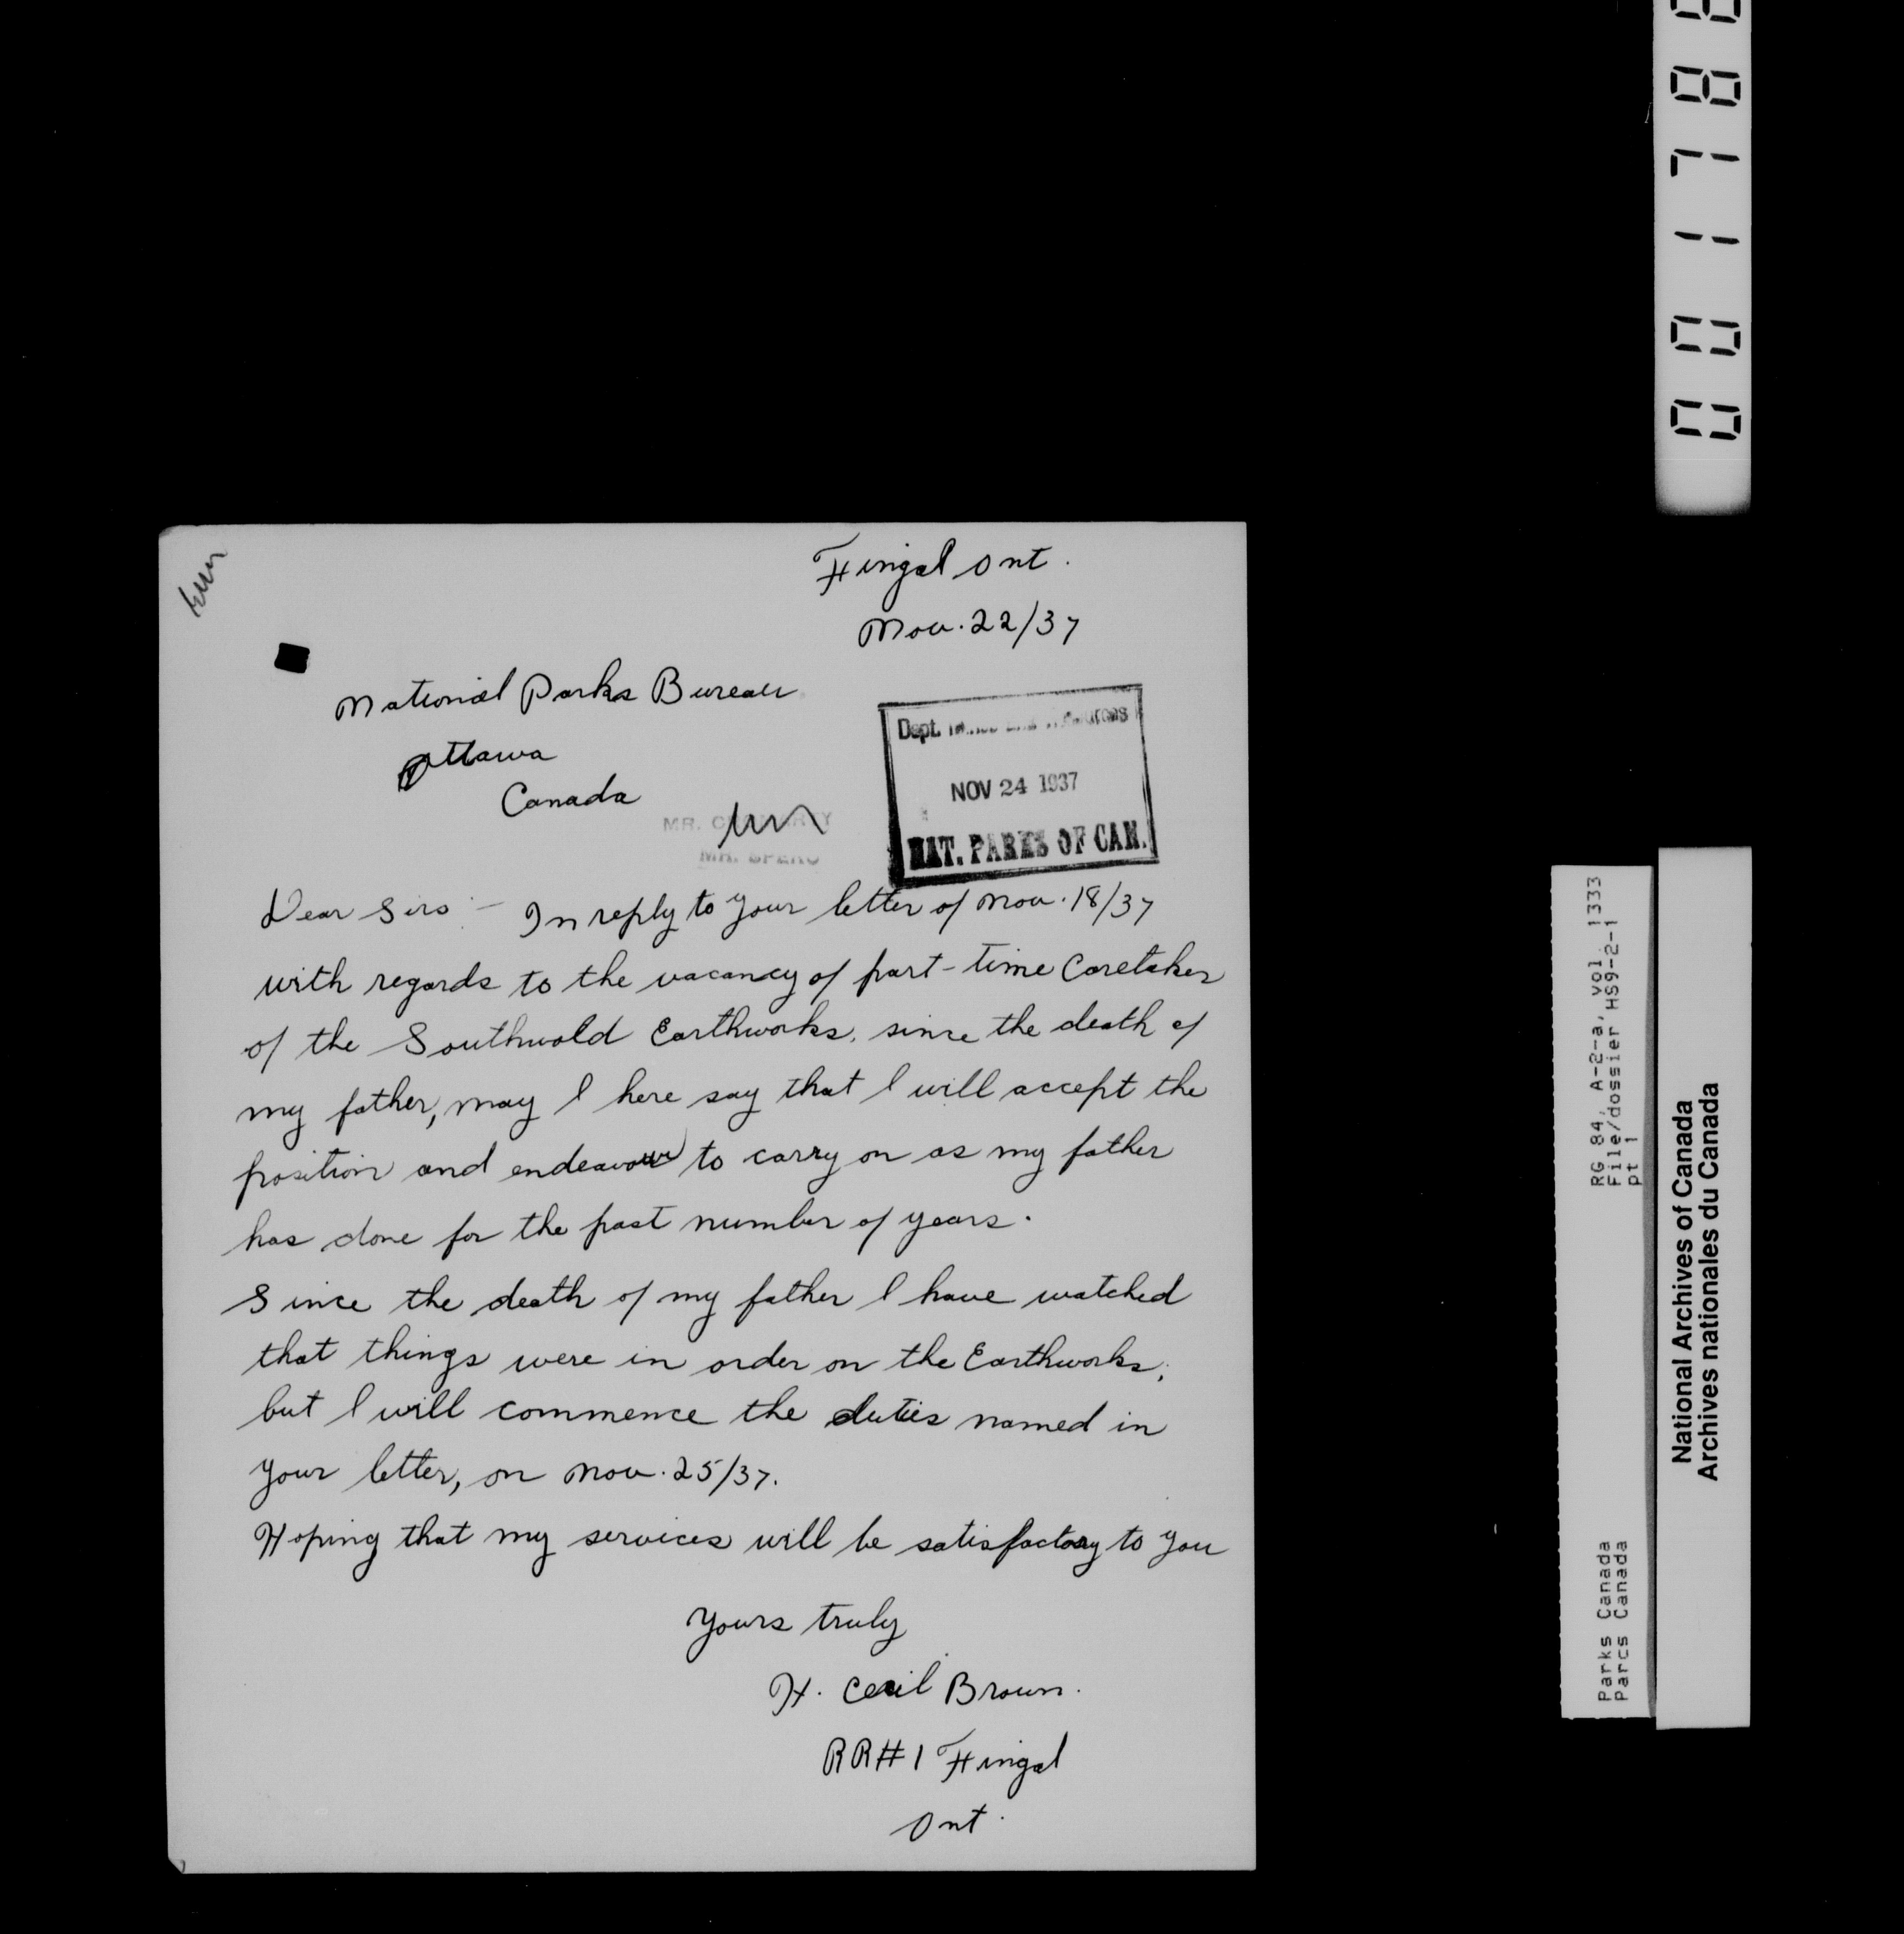 Fingal Ont.
Nov. 22/37
National Parks Bureau
Ottawa
Canada
Dept.
NOV 24 1937
NAT. PARKS OF CAN.
MR.
MR. SPERO
Dear Sirs:- In reply to your letter of Nov. 18/37
with regards to the vacancy of part-time Caretaker
of the Southwold Earthworks, since the death of
my father, may I here say that I will accept the
position and endeavour to carry on as my father
has done for the past number of years.
Since the death of my father I have watched
that things were in order on the Earthworks;
but I will commence the duties named in
your letter, on Nov. 25/37.
Hoping that my services will be satisfactory to you
Yours truly
H. Cecil Brown.
RR#1 Fingal
Ont.
RG 84, A-2-a, vol. 1333
File/dossier HS9-2-1
pt 1
Parks Canada
Parcs Canada
National Archives of Canada
Archives nationales du Canada